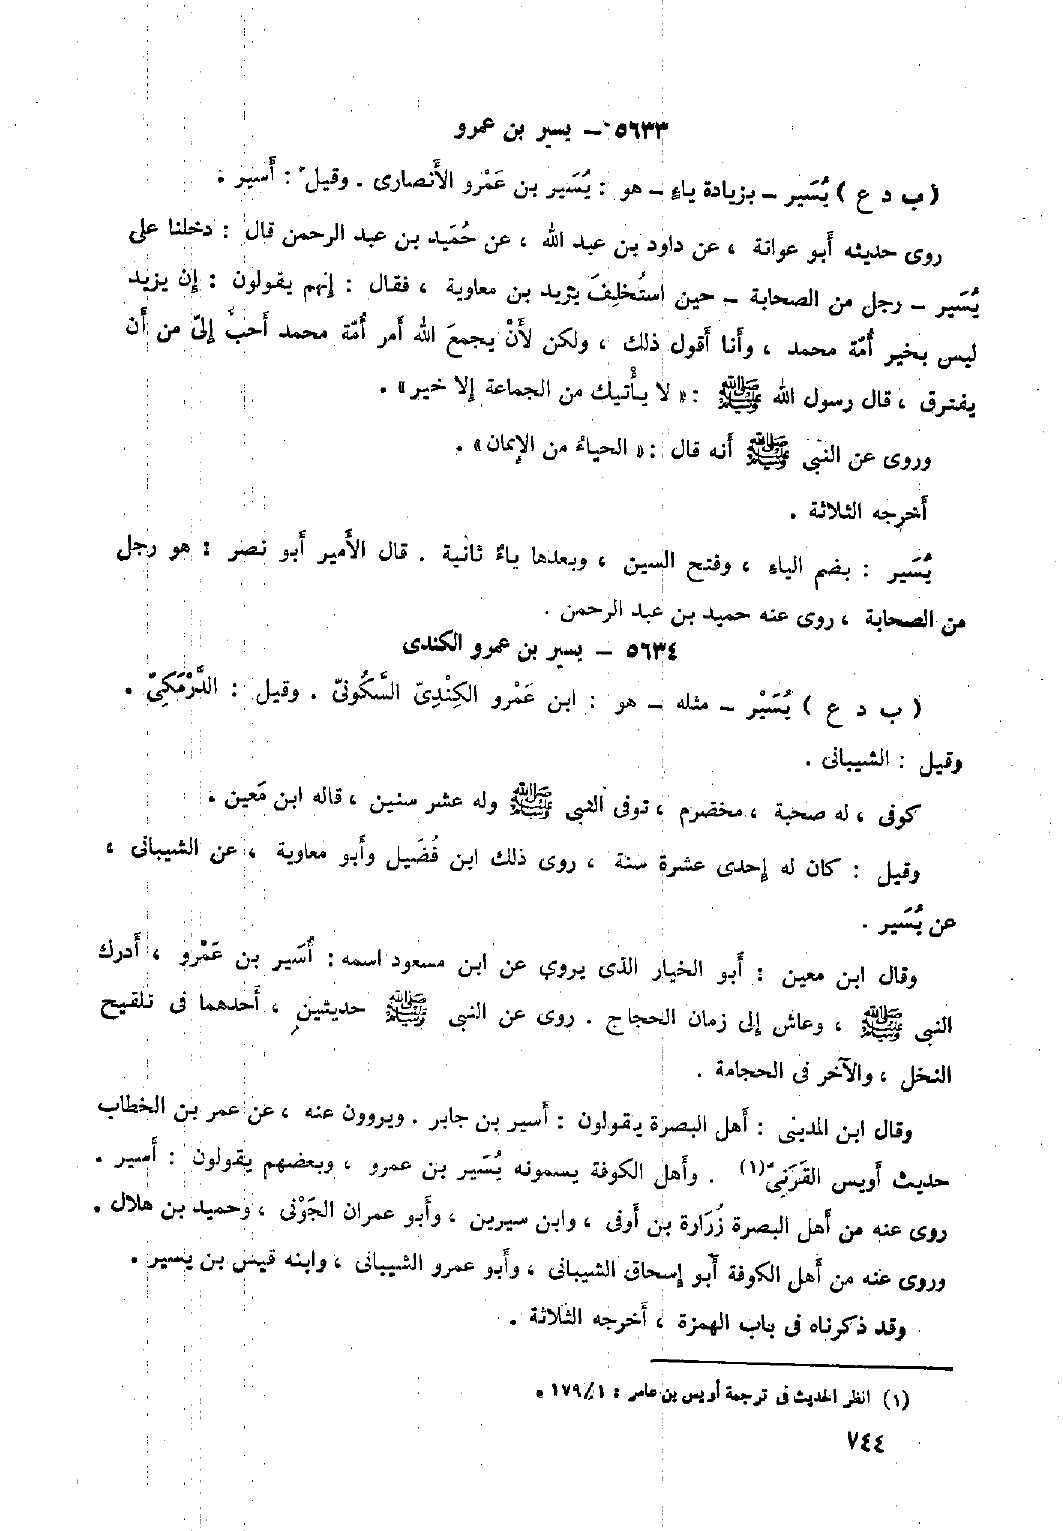 ٥٦٣٣ – يسير بن عمرو
( ب د ع ) يُسَير – بزيادة ياءٍ – هو : يُسَير بن عَمْرو الأَنصارى . وقيل : أَسير .
روى حديثه أَبو عوانة ، عن داود بن عبد الله ، عن حُمَيد بن عبد الرحمن قال : دخلنا على
يُسَير – رجل من الصحابة – حين استُخلِفَ يزيد بن معاوية ، فقال : إنهم يقولون : إن يزيد
ليس بخير أُمّة محمد ، وأنا أقول ذلك ، ولكن لأَنْ يجمعَ الله أمر أُمّة محمد أحبُّ إلىّ من أن
يفترق ، قال رسول الله ﷺ : « لا يأْتيك من الجماعة إلا خير » .
وروى عن النبى ﷺ أَنه قال : « الحياءُ من الإيمان » .
أَخرجه الثلاثة .
يُسَير : بضم الياءِ ، وفتح السين ، وبعدها ياءٌ ثانية . قال الأَمير أَبو نصر : هو رجل
من الصحابة ، روى عنه حميد بن عبد الرحمن .
٥٦٣٤ – يسير بن عمرو الكندى
( ب د ع ) يُسَيْر – مثله – هو : ابن عَمْرو الكِنْدِىّ السَّكُونىّ . وقيل : الدَّرْمَكِىّ .
وقيل : الشيبانى .
كوفى ، له صحبة ، مخضرم ، توفى النبى ﷺ وله عشر سنين ، قاله ابن مَعين .
وقيل : كان له إحدى عشرة سنة ، روى ذلك ابن فُضَيل وأَبو معاوية ، عن الشيبانى ،
عن يُسَير .
وقال ابن معين : أَبو الخيار الذى يروى عن ابن مسعود اسمه : أُسَير بن عَمْرو ، أَدرك
النبى ﷺ ، وعاش إلى زمان الحجاج . روى عن النبى ﷺ حديثين ، أَحدهما فى تلقيح
النخل ، والآخر فى الحجامة .
وقال ابن المدينى : أَهل البصرة يقولون : أَسير بن جابر . ويروون عنه ، عن عمر بن الخطاب
حديث أُويس القَرَنِىّ (١) . وأَهل الكوفة يسمونه يُسَير بن عمرو ، وبعضهم يقولون : أَسير .
روى عنه من أَهل البصرة زُرَارة بن أَوفى ، وابن سيرين ، وأَبو عمران الجَوْنى ، وحميد بن هلال .
وروى عنه من أَهل الكوفة أَبو إسحاق الشيبانى ، وأَبو عمرو الشيبانى ، وابنه قيس بن يسير .
وقد ذكرناه فى باب الهمزة ، أَخرجه الثلاثة .
(١) انظر الحديث فى ترجمة أويس بن عامر : ١/١٧٩ .
٧٤٤